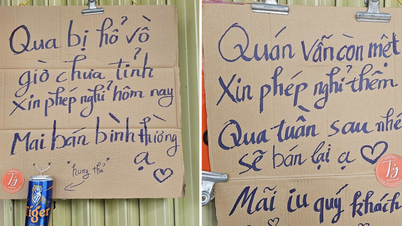 Qua bị hổ vồ
giờ chưa tỉnh
Xin phép nghỉ hôm nay
Mai bán bình thường
ạ
"hung thủ"
Tiger
Quán vẫn còn mệt
Xin phép nghỉ thêm
Qua tuần sau nhé
sẽ bán lại ạ
Mãi iu quý khách